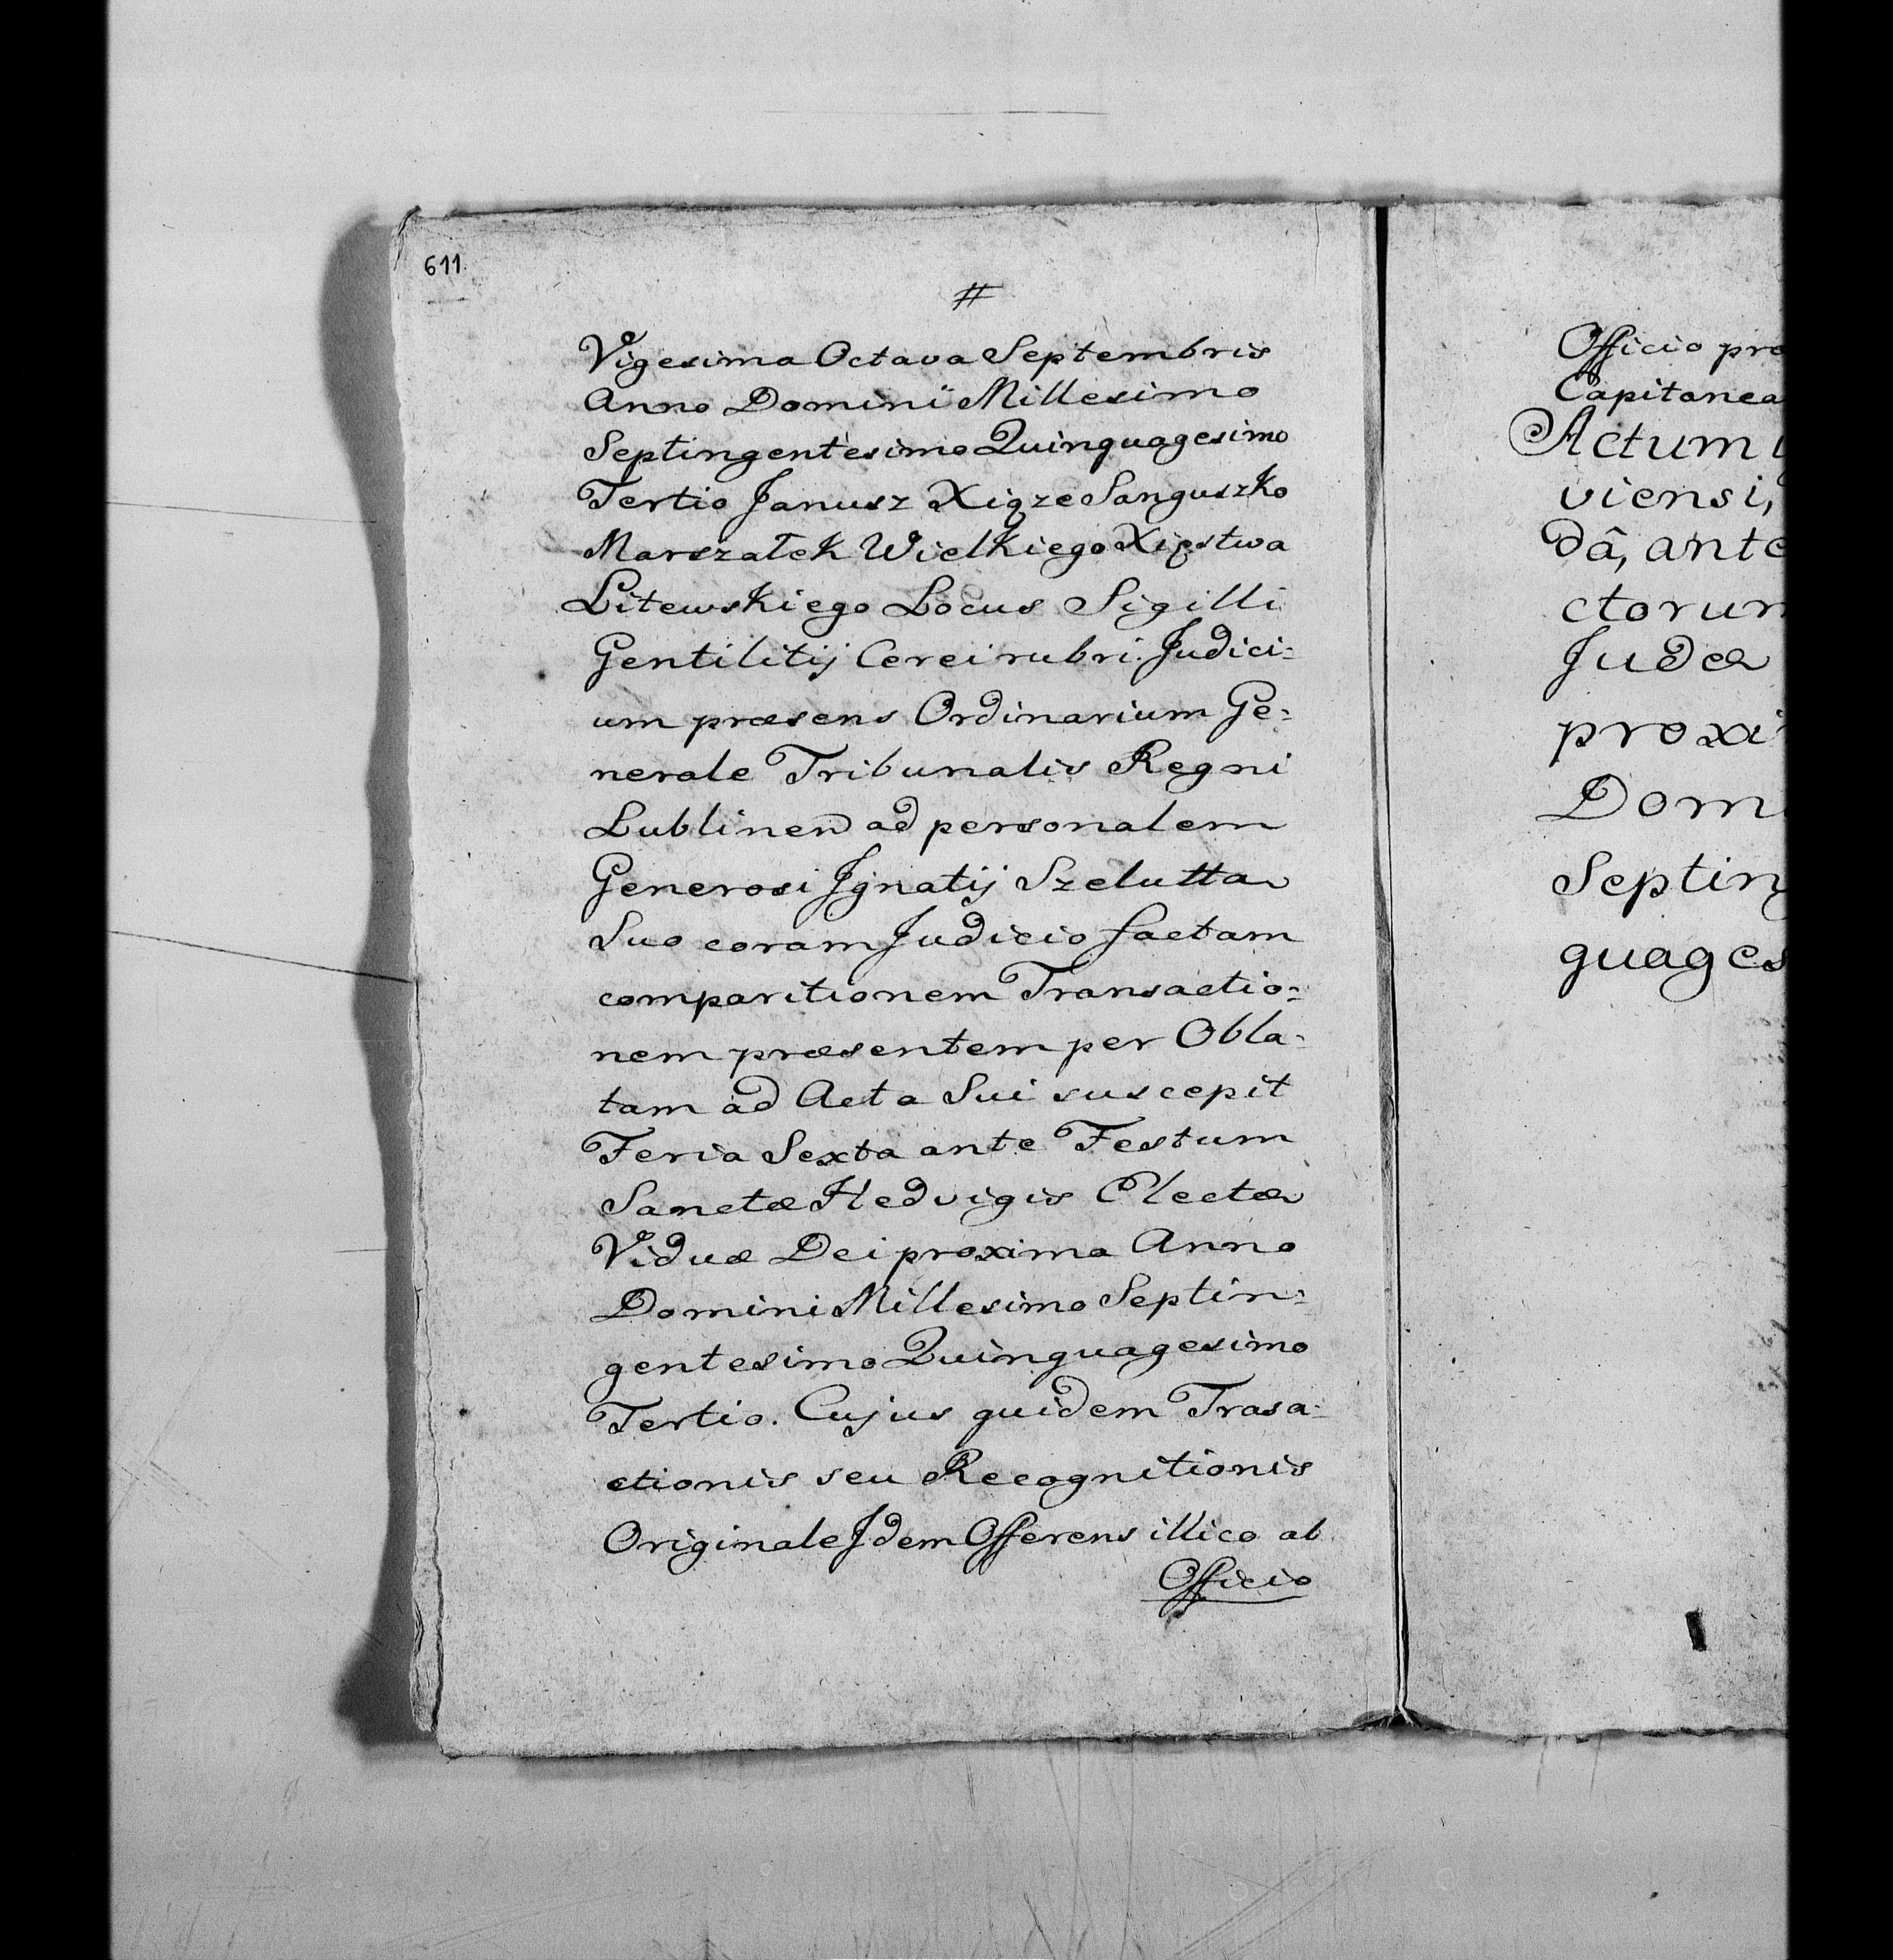 611
#
Vigesima Octava Septembris
Anno Domini Millesimo
Septingentesimo Quinquagesimo
Tertio Janusz Xiąze Sanguszko
Marszałek Wielkiego Xięstwa
Litewskiego Locus Sigilli
Gentilitij Cerei rubri. Judici=
um præsens Ordinarium Ge=
nerale Tribunalis Regni
Lublinen ad personalem
Generosi Jgnatij Szelutta
Suo coram Judicio factam
comparitionem Transactio=
nem præsentem per Obla=
tam ad Acta Sui suscepit
Feria Sexta ante Festum
Sanctæ Hedvigis Electæ
Viduæ Dei proxima Anno
Domini Millesimo Septin=
gentesimo Quinquagesimo
Tertio. Cujus quidem Trasa=
ctionis seu Recognitionis
Originale Jdem Offerens illico ab
Officio
Officio pre
Capitanea
Actum
viensi,
dâ, ante
ctorum
Judæ
proxi
Dom
Septin
quages